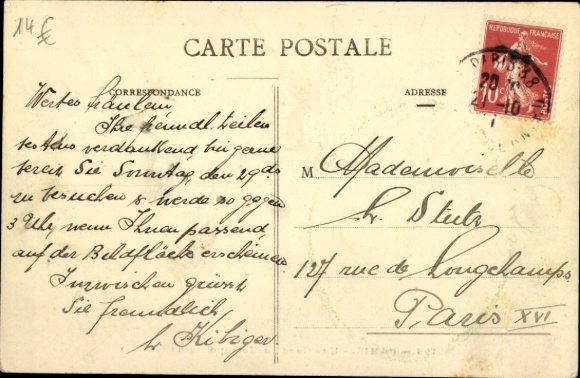 14 €
CARTE POSTALE
CORRESPONDANCE
ADRESSE
REPUBLIQUE FRANÇAISE
10c
PARIS 38
20
21 - 10
Wertes Fräulein
Ihre freundl. Zeilen
bestens verdankend bin gerne
bereit Sie Sonntag, den 29 ds
zu besuchen & werde so gegen
3 Uhr wenn Ihnen passend
auf der Bildfläche erscheinen
Inzwischen grüsst
Sie freundlich
Hr Kibiger
M Mademoiselle
Hr. Stutz
127 rue de Longchamps
Paris XVI